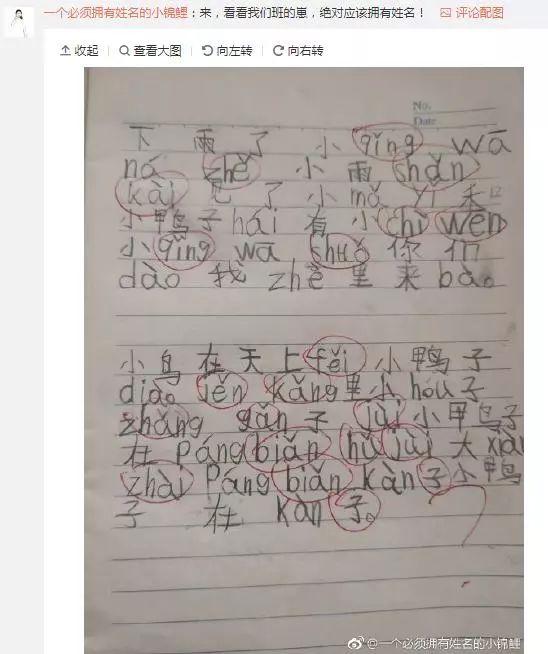 一个必须拥有姓名的小锦鲤：来，看看我们班的崽，绝对应该拥有姓名！ 评论配图
收起 查看大图 向左转 向右转
No.
Date
下 雨 了 小 qǐng wā
ná zhě 小 雨 shǎn
kài 见 了 小 mǎ yǐ 禾
小 鸭 子 hái 有 小 chì wēn
小 qǐng wā shuō 你 们
dào 我 zhè 里 来 bào。
小 鸟 在 天 上 fěi 小 鸭 子
diào jěn kǎng 里 小 hóu 子
zhǎng gǎn 子 jùi 小 甲鸟 子
在 páng biǎn hǔ jùi 大 xiàn
zhài páng biǎn kàn 子 小 鸭
子 在 kàn 子。
@一个必须拥有姓名的小锦鲤